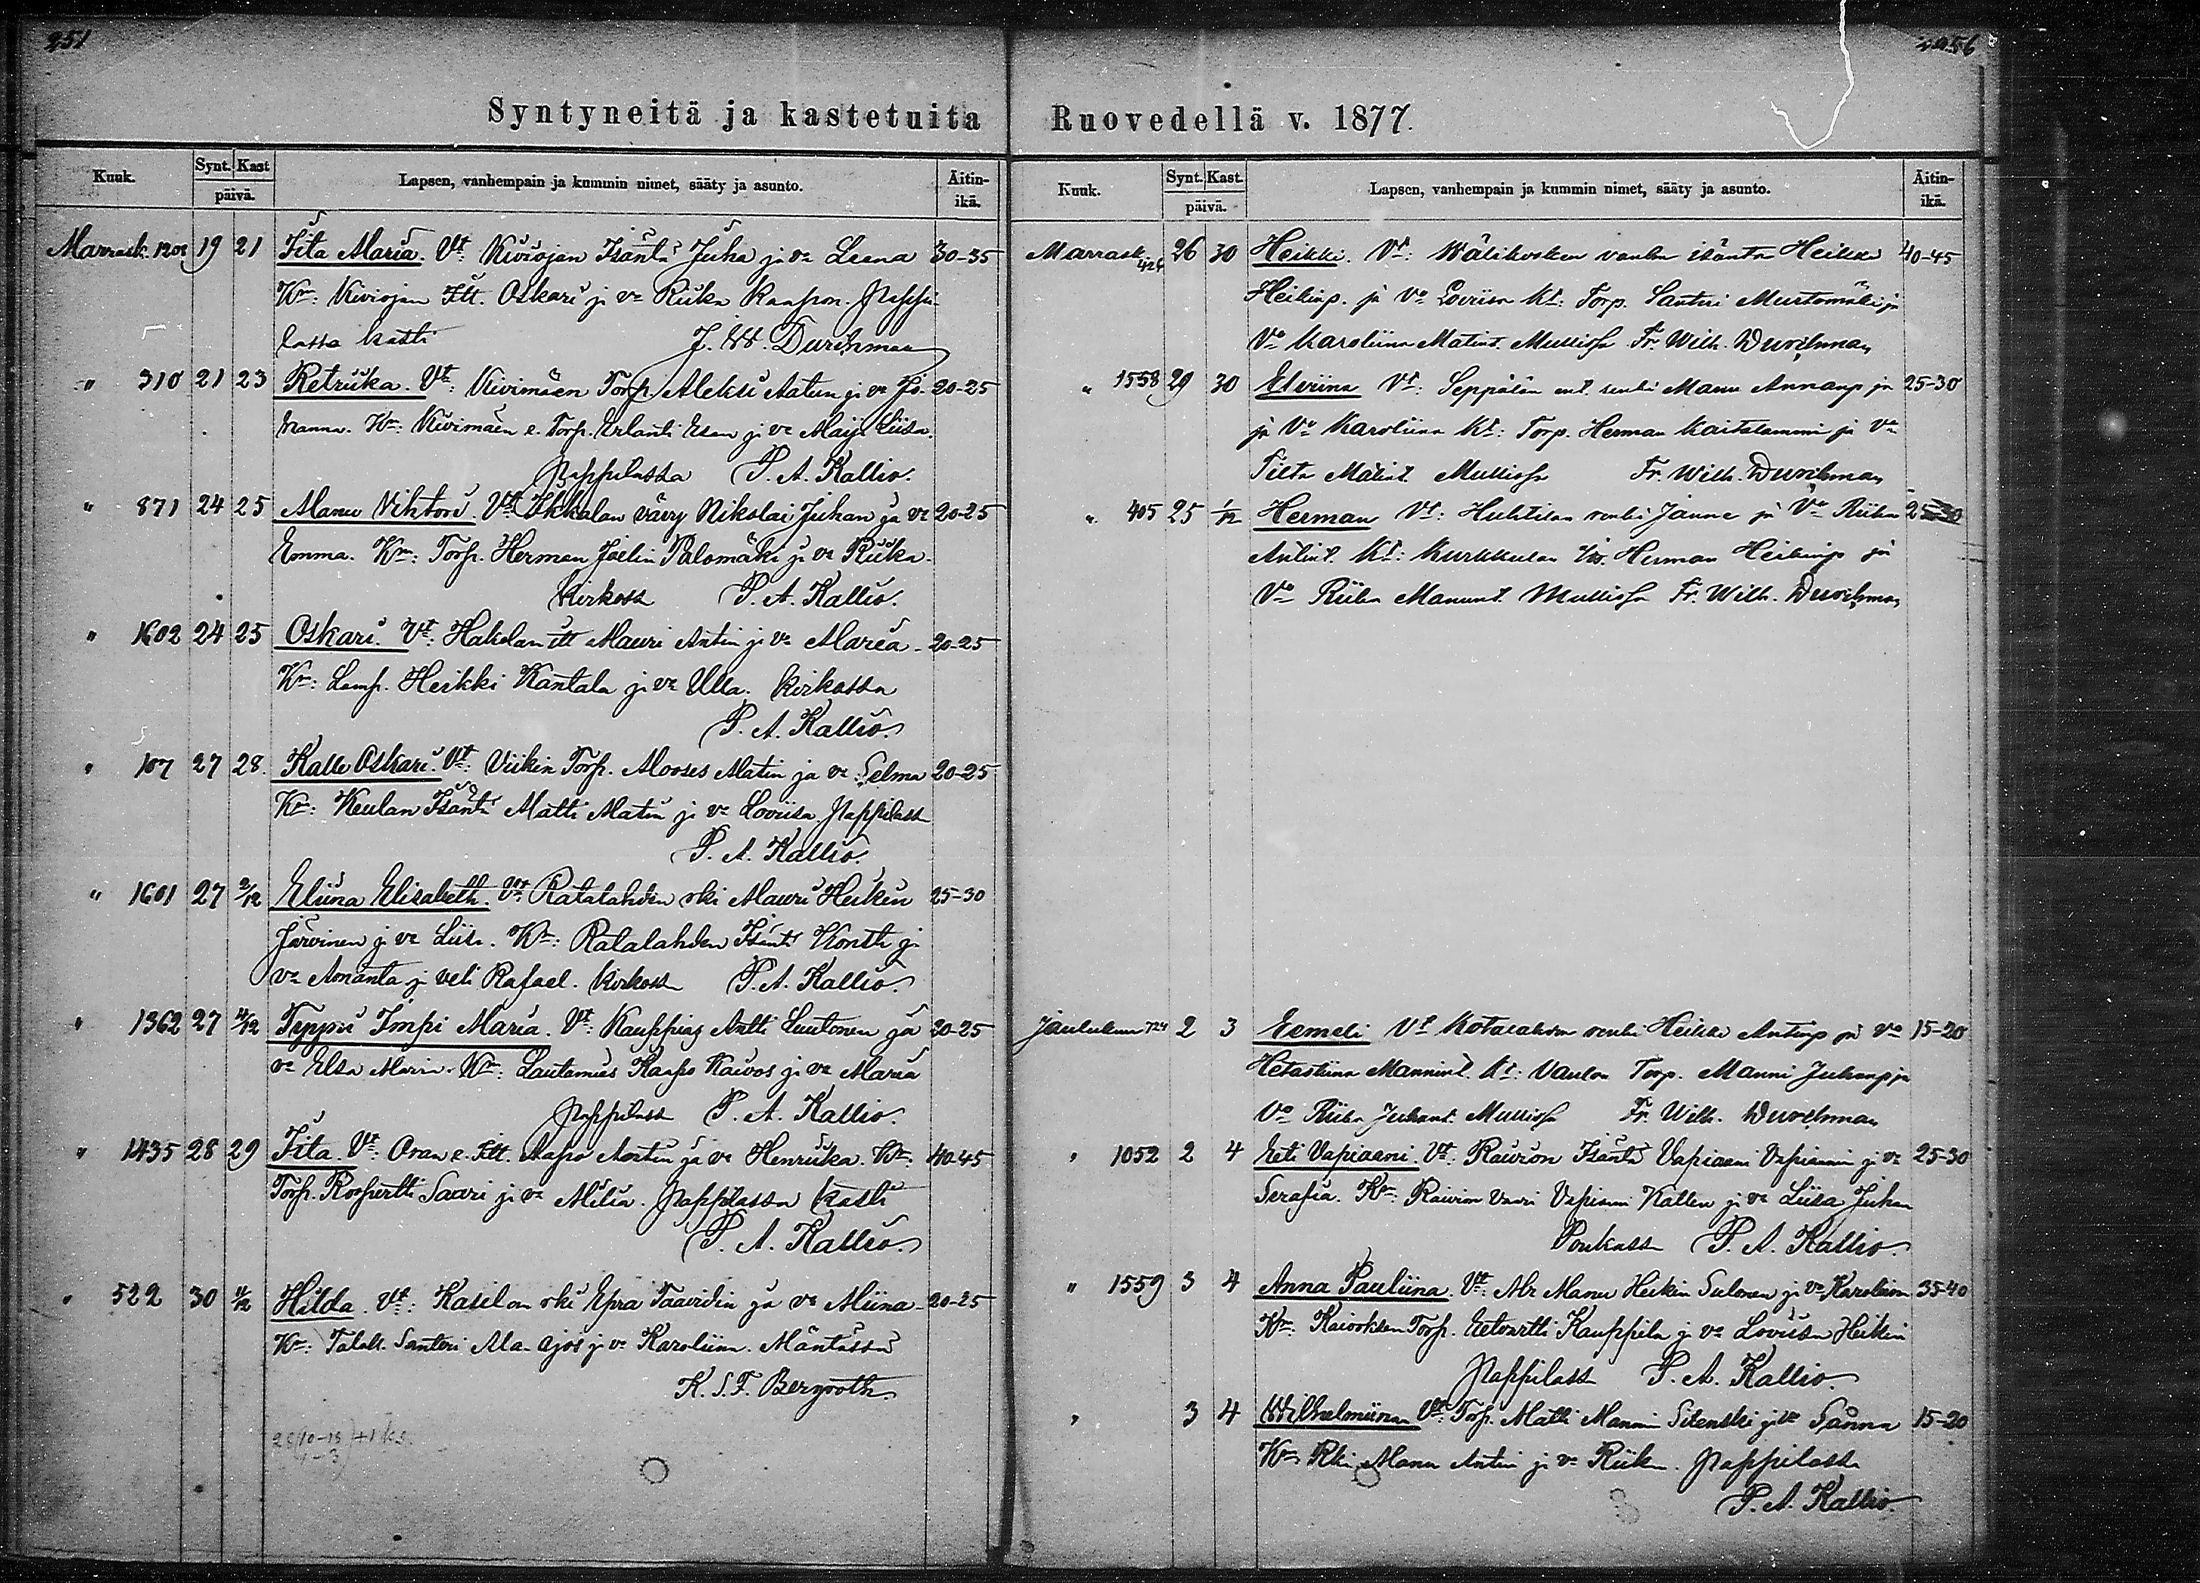 251
Syntyneitä ja kastetuita
Kuuk. Synt. Kast päivä. Lapsen, vanhempain ja kummin nimet, sääty ja asunto. Äitin-ikä.
Marrask. 19 21 Iita Maria. Vt: Kiviojan Isäntä Juha ja vo Leena 30-35
Km: Kiviojan Itt. Oskari ja vo Riika Kaapon. Pappi-
lassa kasti J. W. Durchman
" 310 21 23 Retriika. Vt: Kivimäen Torp. Aleksi Aatun ja vo Jo- 20-25
hanna. Km: Kivimäen e. Torp. Erlanti Esan ja vo Maija Liisa.
Pappilassa P. A. Kallio.
" 871 24 25 Manu Vihtori Vt: Ikkalan vävy Nikolai Juhan ja vo 20-25
Emma. Km: Torp. Herman Joelin Palomäki ja vo Riika.
Kirkossa P. A. Kallio.
" 1602 24 25 Oskari. Vt: Hakalan itt Mauri Antin ja vo Maria 20-25
Km: Lamp. Heikki Kantala ja vo Ulla. Kirkossa
P. A. Kallio.
" 107 27 28. Kalle Oskari. Vt: Viikin Torp. Mooses Matin ja vo Selma 20-25
Km: Keulan Isäntä Matti Matin ja vo Loviisa Pappilassa
P. A. Kallio.
" 1601 27 2/12 Eliina Elisabeth. Vt: Ratalahden rki Mauri Heikin 25-30
Järvinen ja vo Liisa. Km: Ratalahden Isäntä Konsta ja
vo Amanta ja veli Rafael. Kirkossa P. A. Kallio.
" 1362 27 4/12 Teppu Impi Maria. Vt: Kauppias Antti Luutonen ja 20-25
vo Elsa Maria. Km: Lautamies Kaapo Kaivos ja vo Maria
Pappilassa P. A. Kallio.
" 1435 28 29 Iita. Vt: Oran e. Itt. Aapo Antin ja vo Henriika. Km: 40-45
Torp. Roopertti Saari ja vo Milia. Pappilassa kasti
P. A. Kallio.
" 522 30 Hilda. Vt: Kasilan rki Epra Taavidin ja vo Miina 20-25
Km: Talall. Santeri Ala-Ajos ja vo Karoliina. Mäntässä
K. S. F. Bergroth
Ruovedellä v. 1877.
Kuuk. Synt. Kast. päivä. Lapsen, vanhempain ja kummin nimet, sääty ja asunto. Äitin-ikä.
Marrask. 26 30 Heikki. Vt: Wälikosken vanha isäntä Heikki 40-45
Heikinp. ja Vo Loviisa Kt: Torp. Santeri Murtomäki ja
Vo Karoliina Matint. Fr. Wilh. Durchman
" 1558 29 30 Elviina Vt: Seppälän ent. renki Manu Annanp ja 25-30
ja Vo Karoliina Kt: Torp. Herman Kaitalammi ja Vo
Matint. Fr. Wilh. Durchman
" 405 25 1/12 Herman Vt: Huhtilan renki Janne ja Vo Riika
Antint. Kt: Kurkkulan is. Herman Heikinp ja
Vo Riika Manunt. Fr. Wilh. Durchman
Jouluk. 724 2 3 Eemeli Vt renki Heikki Antinp ja Vo 15-20
Torp. Manni Juhanp ja
Vo Riika Juhant. Fr. Wilh. Durchman
" 1052 2 4 Eeti Vapiaani. Vt: Raivion Isäntä Vapiaani Vapiaanin ja vo 25-30
Serafia. Km: Raivion vaari Vapiaani Kallen ja vo Liisa Juhan
P. A. Kallio.
" 1559 3 4 Anna Pauliina. Vt: Mr Manu Heikin Salonen ja vo Karoliina 35-40
Km: Torp. Eetvartti Kauppila ja vo Loviisa Heikin
Pappilassa P. A. Kallio.
" 3 4 Wilhelmiina Vt: Torp. Matti Mannin Silenski ja vo Sanna 15-20
Km Rki Manu Antin ja vo Riika. Pappilassa
P. A. Kallio.